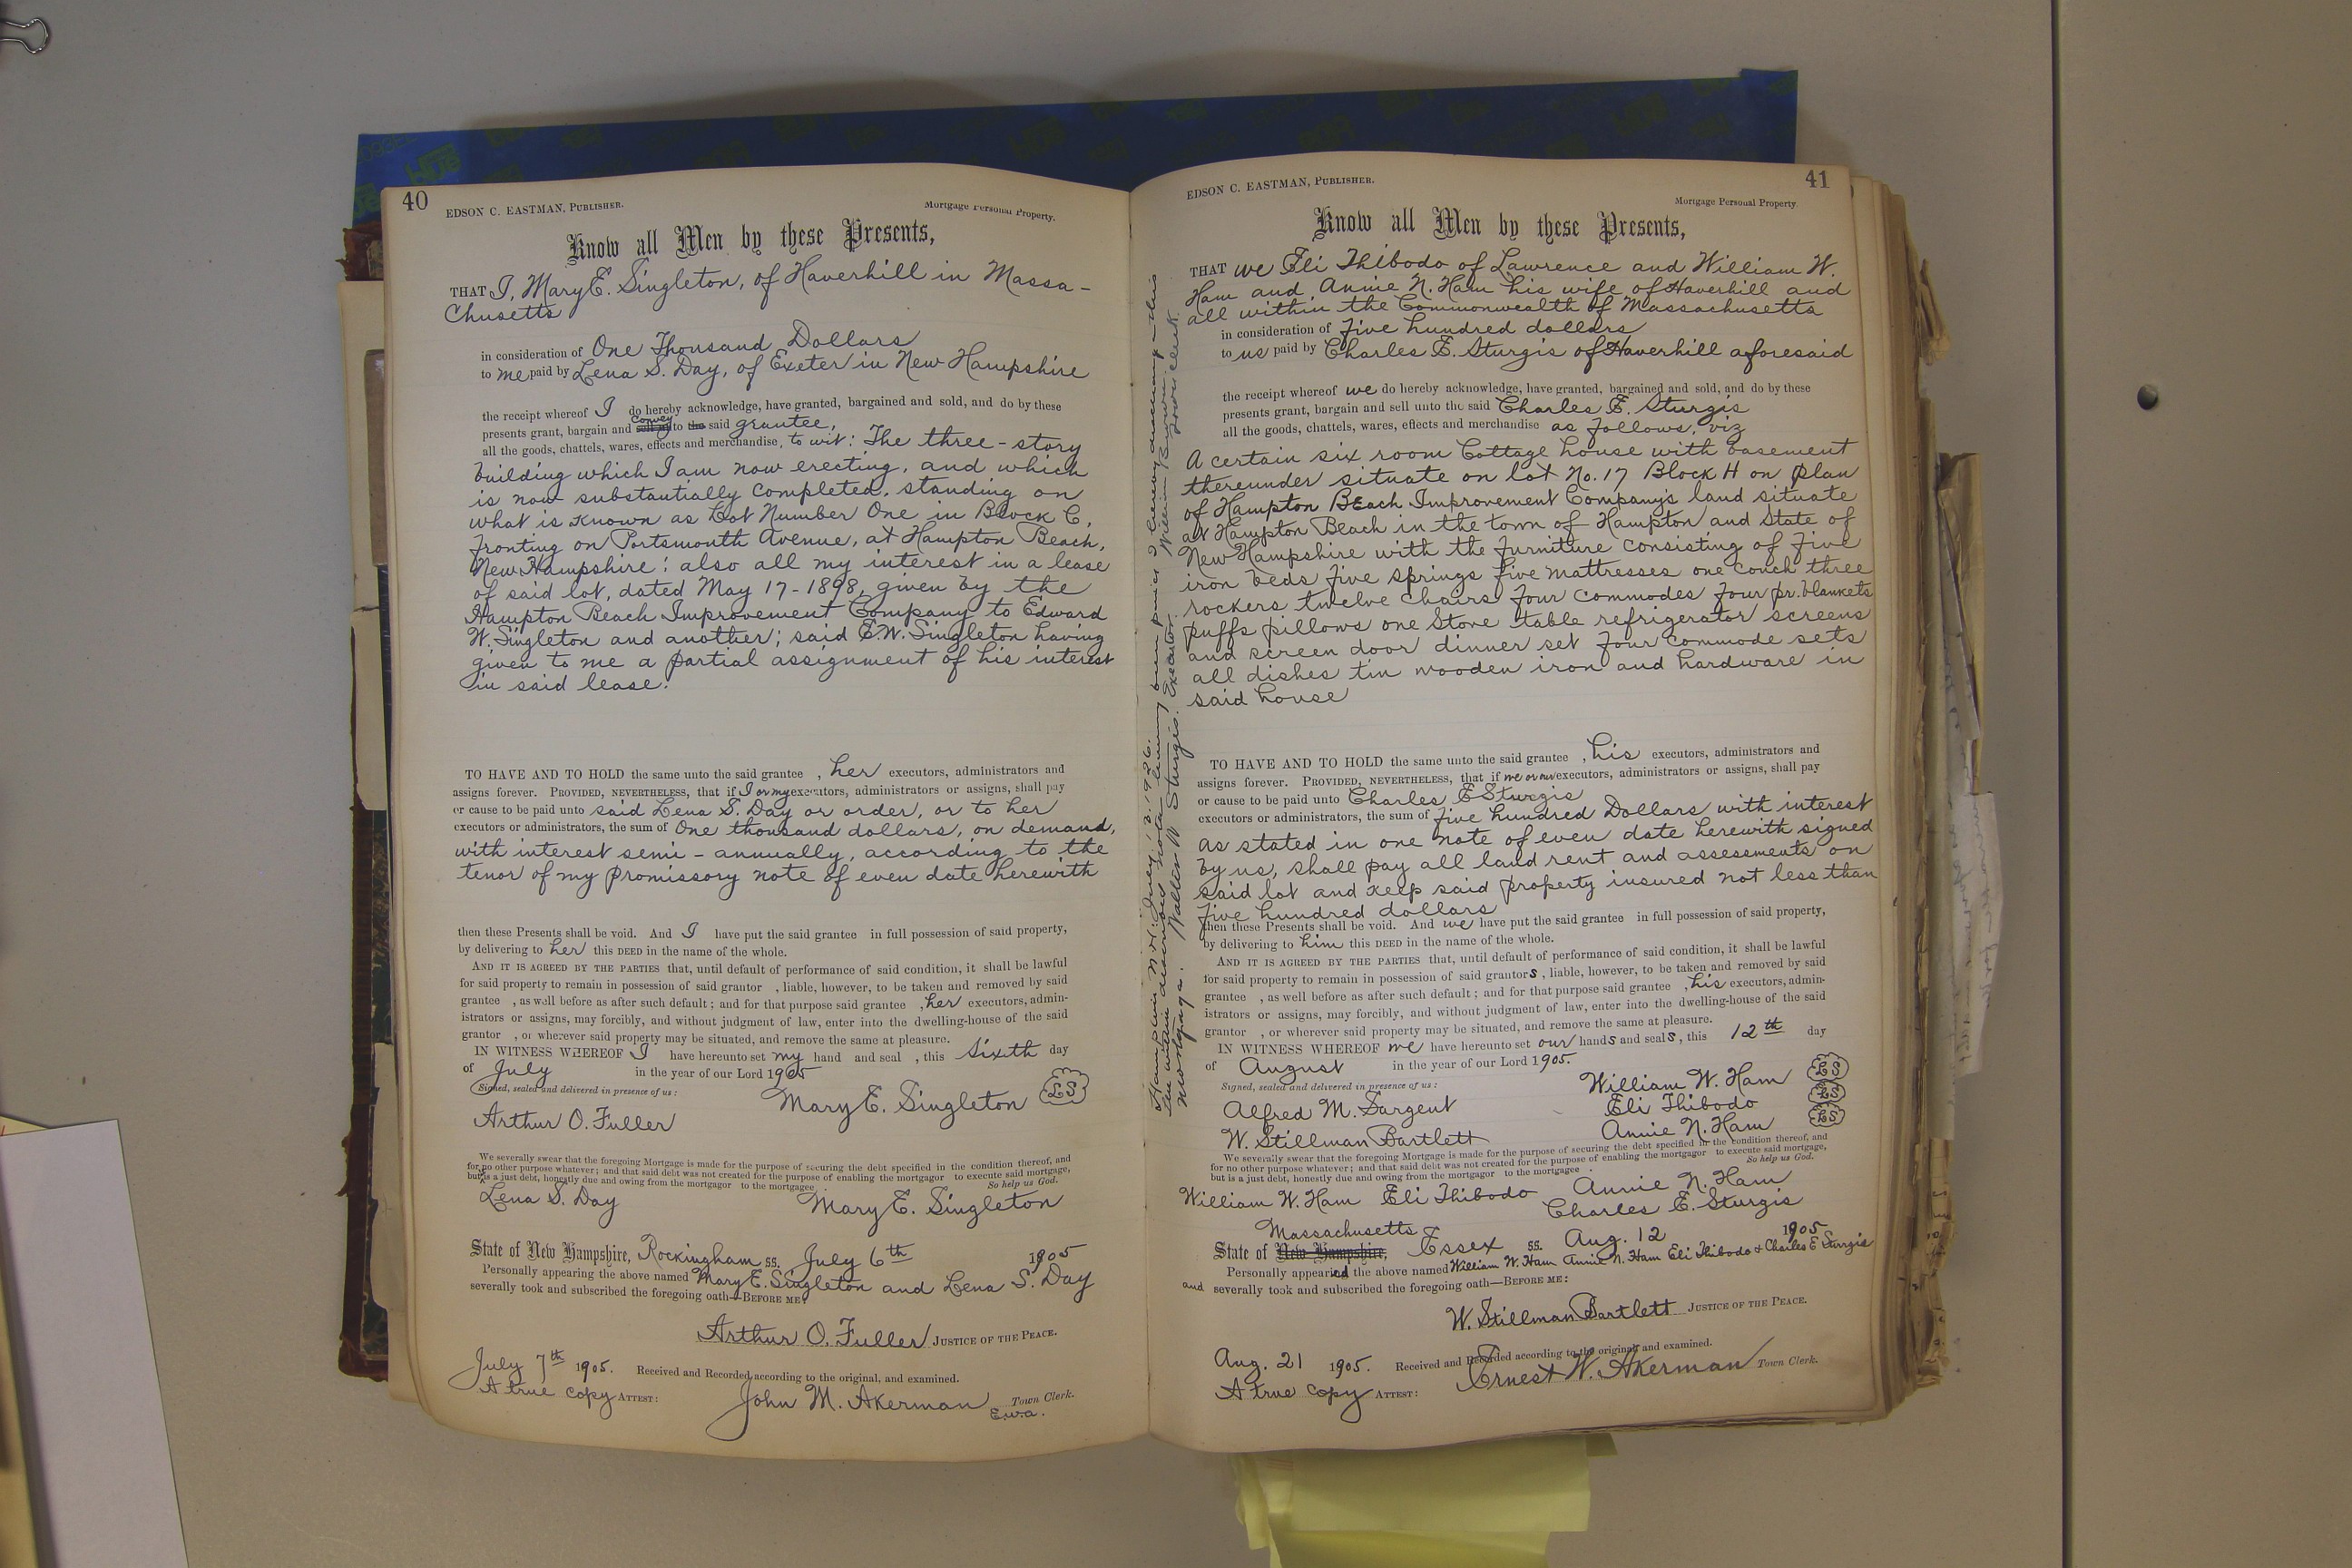 40
EDSON C. EASTMAN, PUBLISHER.
Mortgage Personal Property.
Know all Men by these Presents,
THAT I, Mary E. Singleton, of Haverhill in Massa-
chusetts
in consideration of One Thousand Dollars
to me paid by Lena S. Day, of Exeter in New Hampshire
the receipt whereof I do hereby acknowledge, have granted, bargained and sold, and do by these
presents grant, bargain and sell convey unto the said grantee,
all the goods, chattels, wares, effects and merchandise, to wit: The three-story
building which I am now erecting, and which
is now substantially completed, standing on
what is known as Lot Number One in Block C,
fronting on Portsmouth Avenue, at Hampton Beach,
New Hampshire; also all my interest in a lease
of said lot, dated May 17-1898, given by the
Hampton Beach Improvement Company to Edward
W. Singleton and another; said E.W. Singleton having
given to me a partial assignment of his interest
in said lease.
TO HAVE AND TO HOLD the same unto the said grantee , her executors, administrators and
assigns forever. PROVIDED, NEVERTHELESS, that if I or my executors, administrators or assigns, shall pay
or cause to be paid unto said Lena S. Day or order, or to her
executors or administrators, the sum of One thousand dollars, on demand,
with interest semi-annually, according to the
tenor of my promissory note of even date herewith
then these Presents shall be void. And I have put the said grantee in full possession of said property,
by delivering to her this DEED in the name of the whole.
AND IT IS AGREED BY THE PARTIES that, until default of performance of said condition, it shall be lawful
for said property to remain in possession of said grantor , liable, however, to be taken and removed by said
grantee , as well before as after such default; and for that purpose said grantee , her executors, admin-
istrators or assigns, may forcibly, and without judgment of law, enter into the dwelling-house of the said
grantor , or wherever said property may be situated, and remove the same at pleasure.
IN WITNESS WHEREOF I have hereunto set my hand and seal , this sixth day
of July in the year of our Lord 1905
Signed, sealed and delivered in presence of us:
Mary E. Singleton LS
Arthur O. Fuller
We severally swear that the foregoing Mortgage is made for the purpose of securing the debt specified in the condition thereof, and
for no other purpose whatever; and that said debt was not created for the purpose of enabling the mortgagor to execute said mortgage,
but is a just debt, honestly due and owing from the mortgagor to the mortgagee . So help us God.
Lena S. Day Mary E. Singleton
State of New Hampshire, Rockingham ss. July 6th 1905
Personally appearing the above named Mary E. Singleton and Lena S. Day
severally took and subscribed the foregoing oath—BEFORE ME:
Arthur O. Fuller JUSTICE OF THE PEACE.
July 7th 1905. Received and Recorded according to the original, and examined.
A true copy ATTEST: John M. Akerman Town Clerk.
E.W.A.
41
EDSON C. EASTMAN, PUBLISHER.
Mortgage Personal Property.
Know all Men by these Presents,
THAT we Eli Thibodo of Lawrence and William W.
Ham and Annie N. Ham his wife of Haverhill and
all within the Commonwealth of Massachusetts
in consideration of Five hundred dollars
to us paid by Charles E. Sturgis of Haverhill aforesaid
the receipt whereof we do hereby acknowledge, have granted, bargained and sold, and do by these
presents grant, bargain and sell unto the said Charles E. Sturgis
all the goods, chattels, wares, effects and merchandise as follows, viz
A certain six room Cottage house with basement
thereunder situate on lot No. 17 Block H on plan
of Hampton Beach Improvement Company's land situate
at Hampton Beach in the town of Hampton and State of
New Hampshire with the furniture consisting of five
iron beds five springs five mattresses one couch three
rockers twelve chairs four commodes four pr. blankets
puffs pillows one Stove table refrigerator screens
and screen door dinner set four commode sets
all dishes tin wooden iron and hardware in
said house
TO HAVE AND TO HOLD the same unto the said grantee , his executors, administrators and
assigns forever. PROVIDED, NEVERTHELESS, that if we or our executors, administrators or assigns, shall pay
or cause to be paid unto Charles E Sturgis
executors or administrators, the sum of five hundred Dollars with interest
as stated in one note of even date herewith signed
by us, shall pay all land rent and assessments on
said lot and keep said property insured not less than
five hundred dollars
then these Presents shall be void. And we have put the said grantee in full possession of said property,
by delivering to him this DEED in the name of the whole.
AND IT IS AGREED BY THE PARTIES that, until default of performance of said condition, it shall be lawful
for said property to remain in possession of said grantors , liable, however, to be taken and removed by said
grantee , as well before as after such default; and for that purpose said grantee , his executors, admin-
istrators or assigns, may forcibly, and without judgment of law, enter into the dwelling-house of the said
grantor , or wherever said property may be situated, and remove the same at pleasure.
IN WITNESS WHEREOF we have hereunto set our hands and seals, this 12th day
of August in the year of our Lord 1905.
Signed, sealed and delivered in presence of us:
William W. Ham LS
Alfred M. Sargent Eli Thibodo LS
W. Stillman Bartlett Annie N. Ham LS
We severally swear that the foregoing Mortgage is made for the purpose of securing the debt specified in the condition thereof, and
for no other purpose whatever; and that said debt was not created for the purpose of enabling the mortgagor to execute said mortgage,
but is a just debt, honestly due and owing from the mortgagor to the mortgagee . So help us God.
William W. Ham Eli Thibodo Annie N. Ham
Charles E. Sturgis
Massachusetts
State of New Hampshire, Essex ss. Aug. 12 1905
Personally appeared the above named William W. Ham Annie N. Ham Eli Thibodo & Charles E Sturgis
and severally took and subscribed the foregoing oath—BEFORE ME:
W. Stillman Bartlett JUSTICE OF THE PEACE.
Aug. 21 1905. Received and Recorded according to the original, and examined.
A true copy ATTEST: Ernest W. Akerman Town Clerk.
Hampton N.H. July 13 1926. having been paid I hereby discharge this
mortgage. Walter W Sturgis. Executor. William Brown Town clerk.